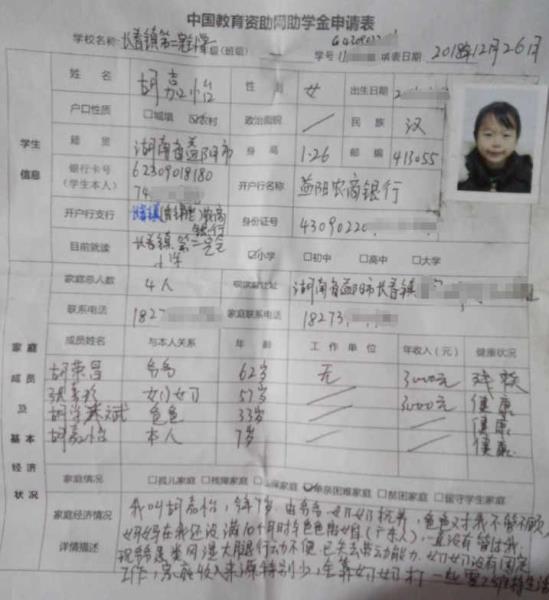 中国教育资助网助学金申请表
学校名称 长春镇第二完小学 级(班级) 学号 填表日期 2018年12月26日
姓名 胡嘉怡 性别 女 出生日期
户口性质 □城镇 ☑农村 政治面貌 / 民族 汉
学生信息
籍贯 湖南省益阳市 身高 1.26 邮编 413055
银行卡号(学生本人) 62309018180 74 开户行名称 益阳农商银行
开户行支行 身份证号 43090220
目前就读 长春镇第二完全小学 ☑小学 □初中 □高中 □大学
家庭总人数 4人 湖南省益阳市长春镇
联系电话 1827 家庭联系电话 18273
家庭成员及基本经济状况
成员姓名 与本人关系 年龄 工作单位 年收入(元) 健康状况
胡荣昌 爷爷 62岁 无 3000元 残疾
张 奶奶 57岁 / 3000元 健康
胡 斌 爸爸 33岁 / / 健康
胡嘉怡 本人 7岁 / / 健康
家庭情况 □孤儿家庭 □残障家庭 保家庭 单亲困难家庭 □贫困家庭 □留守学生家庭
家庭经济情况详情描述
我叫胡嘉怡,今年7岁,由爷爷奶奶抚养,爸爸又对我不管不顾,
妈妈在我还没满10个月时
现爷爷 行动不便,已失去劳动能力,奶奶没有固定
工作,家庭收入来源特别少,全靠奶奶打一些零工维持生活